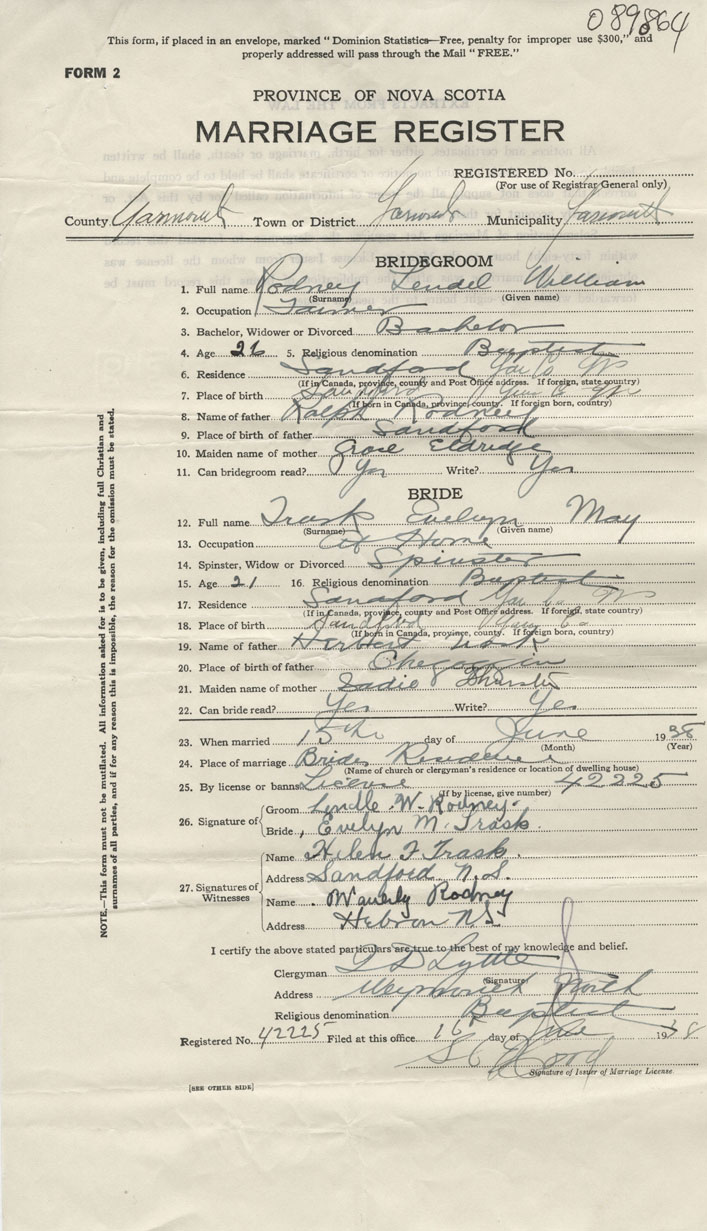 089864
This form, if placed in an envelope, marked "Dominion Statistics—Free, penalty for improper use $300," and
properly addressed will pass through the Mail "FREE."
FORM 2
PROVINCE OF NOVA SCOTIA
MARRIAGE REGISTER
REGISTERED No.
(For use of Registrar General only)
County Yarmouth Town or District Yarmouth Municipality Yarmouth
BRIDEGROOM
1. Full name Rodney Lendel William
(Surname) (Given name)
2. Occupation Farmer
3. Bachelor, Widower or Divorced Bachelor
4. Age 26 5. Religious denomination Baptist
6. Residence Sandford Yar Co NS
(If in Canada, province, county and Post Office address. If foreign, state country)
7. Place of birth Sandford Yar Co NS
(If born in Canada, province, county. If foreign born, country)
8. Name of father Ralph Rodney
9. Place of birth of father Sandford
10. Maiden name of mother Grace Eldridge
11. Can bridegroom read? Yes Write? Yes
BRIDE
12. Full name Trask Evelyn May
(Surname) (Given name)
13. Occupation At Home
14. Spinster, Widow or Divorced Spinster
15. Age 21 16. Religious denomination Baptist
17. Residence Sandford Yar Co NS
(If in Canada, province, county and Post Office address. If foreign, state country)
18. Place of birth Sandford Yar Co
(If born in Canada, province, county. If foreign born, country)
19. Name of father Herbert Trask
20. Place of birth of father Chegoggin
21. Maiden name of mother Sadie Thurston
22. Can bride read? Yes Write? Yes
23. When married 15th day of June 1938
(Month) (Year)
24. Place of marriage Brides Residence
(Name of church or clergyman's residence or location of dwelling house)
25. By license or banns License (If by license, give number) 42225
26. Signature of Groom Lendle W. Rodney.
Bride Evelyn M. Trask.
27. Signatures of Witnesses
Name Helen F Trask.
Address Sandford N.S.
Name Waverly Rodney
Address Hebron N.S.
I certify the above stated particulars are true to the best of my knowledge and belief.
Clergyman Lyttle
(Signature)
Address Weymouth North
Religious denomination Baptist
Registered No. 42225 Filed at this office 16 day of June 1938
S C Hood
Signature of Issuer of Marriage License
[SEE OTHER SIDE]
NOTE.—This form must not be mutilated. All information asked for is to be given, including full Christian and
surnames of all parties, and if for any reason this is impossible, the reason for the omission must be stated.